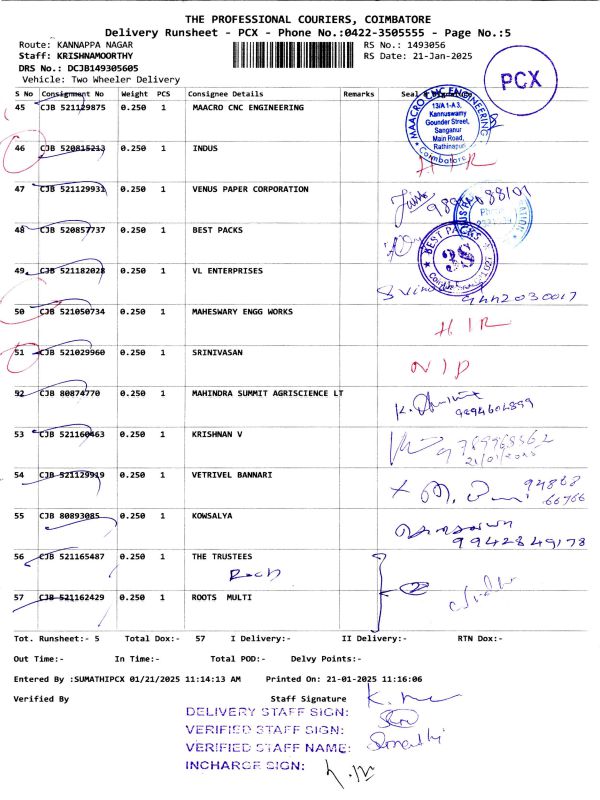 THE PROFESSIONAL COURIERS, COIMBATORE
Delivery Runsheet - PCX - Phone No.:0422-3505555 - Page No.:5
Route: KANNAPPA NAGAR RS No.: 1493056
Staff: KRISHNAMOORTHY RS Date: 21-Jan-2025
DRS No.: DCJB149305605
Vehicle: Two Wheeler Delivery
PCX
S No Consignment No Weight PCS Consignee Details Remarks Seal
45 CJB 521129875 0.250 1 MAACRO CNC ENGINEERING
MAACRO CNC ENGINEERING
13/A1-A3,
Kannuswamy
Gounder Street,
Sanganur
Main Road,
Rathinapuri
Coimbatore
46 CJB 520815213 0.250 1 INDUS
H I R
47 CJB 521129931 0.250 1 VENUS PAPER CORPORATION
48 CJB 520857737 0.250 1 BEST PACKS
BEST PACKS
49 CJB 521182028 0.250 1 VL ENTERPRISES
50 CJB 521050734 0.250 1 MAHESWARY ENGG WORKS
H I R
51 CJB 521029960 0.250 1 SRINIVASAN
N I D
52 CJB 80874770 0.250 1 MAHINDRA SUMMIT AGRISCIENCE LT
9894604899
53 CJB 521160463 0.250 1 KRISHNAN V
21/01/2025
54 CJB 521129919 0.250 1 VETRIVEL BANNARI
94868
66766
55 CJB 80893085 0.250 1 KOWSALYA
9942849178
56 CJB 521165487 0.250 1 THE TRUSTEES
57 CJB 521162429 0.250 1 ROOTS MULTI
Tot. Runsheet:- 5 Total Dox:- 57 I Delivery:- II Delivery:- RTN Dox:-
Out Time:- In Time:- Total POD:- Delvy Points:-
Entered By :SUMATHIPCX 01/21/2025 11:14:13 AM Printed On: 21-01-2025 11:16:06
Verified By Staff Signature
DELIVERY STAFF SIGN:
VERIFIED STAFF SIGN:
VERIFIED STAFF NAME: Sumathi
INCHARGE SIGN: